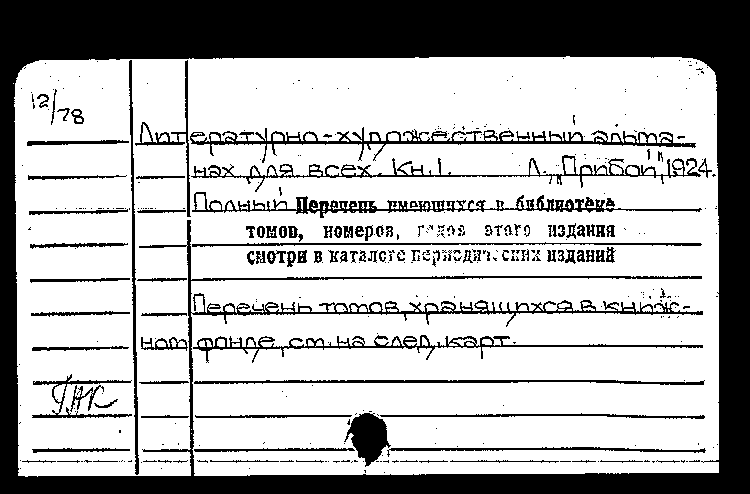 12/78
Литературно-художественный альма-
нах для всех. Кн.1. Л., "Прибой", 1924.
Полный Перечень имеющихся в библиотеке
томов, номеров, годов этого издания
смотри в каталоге периодических изданий
Перечень томов, хранящихся в книж-
ном фонде, см. на след. карт.
ГАК